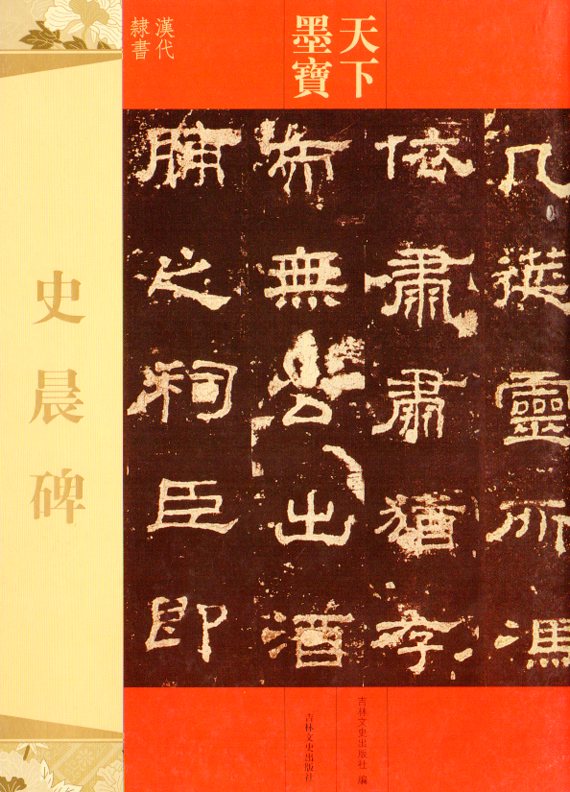 天下
墨寶
漢代
隸書
几筵靈所馮
依肅肅猶存
而無公出酒
脯之祠臣即
史晨碑
吉林文史出版社 編
吉林文史出版社